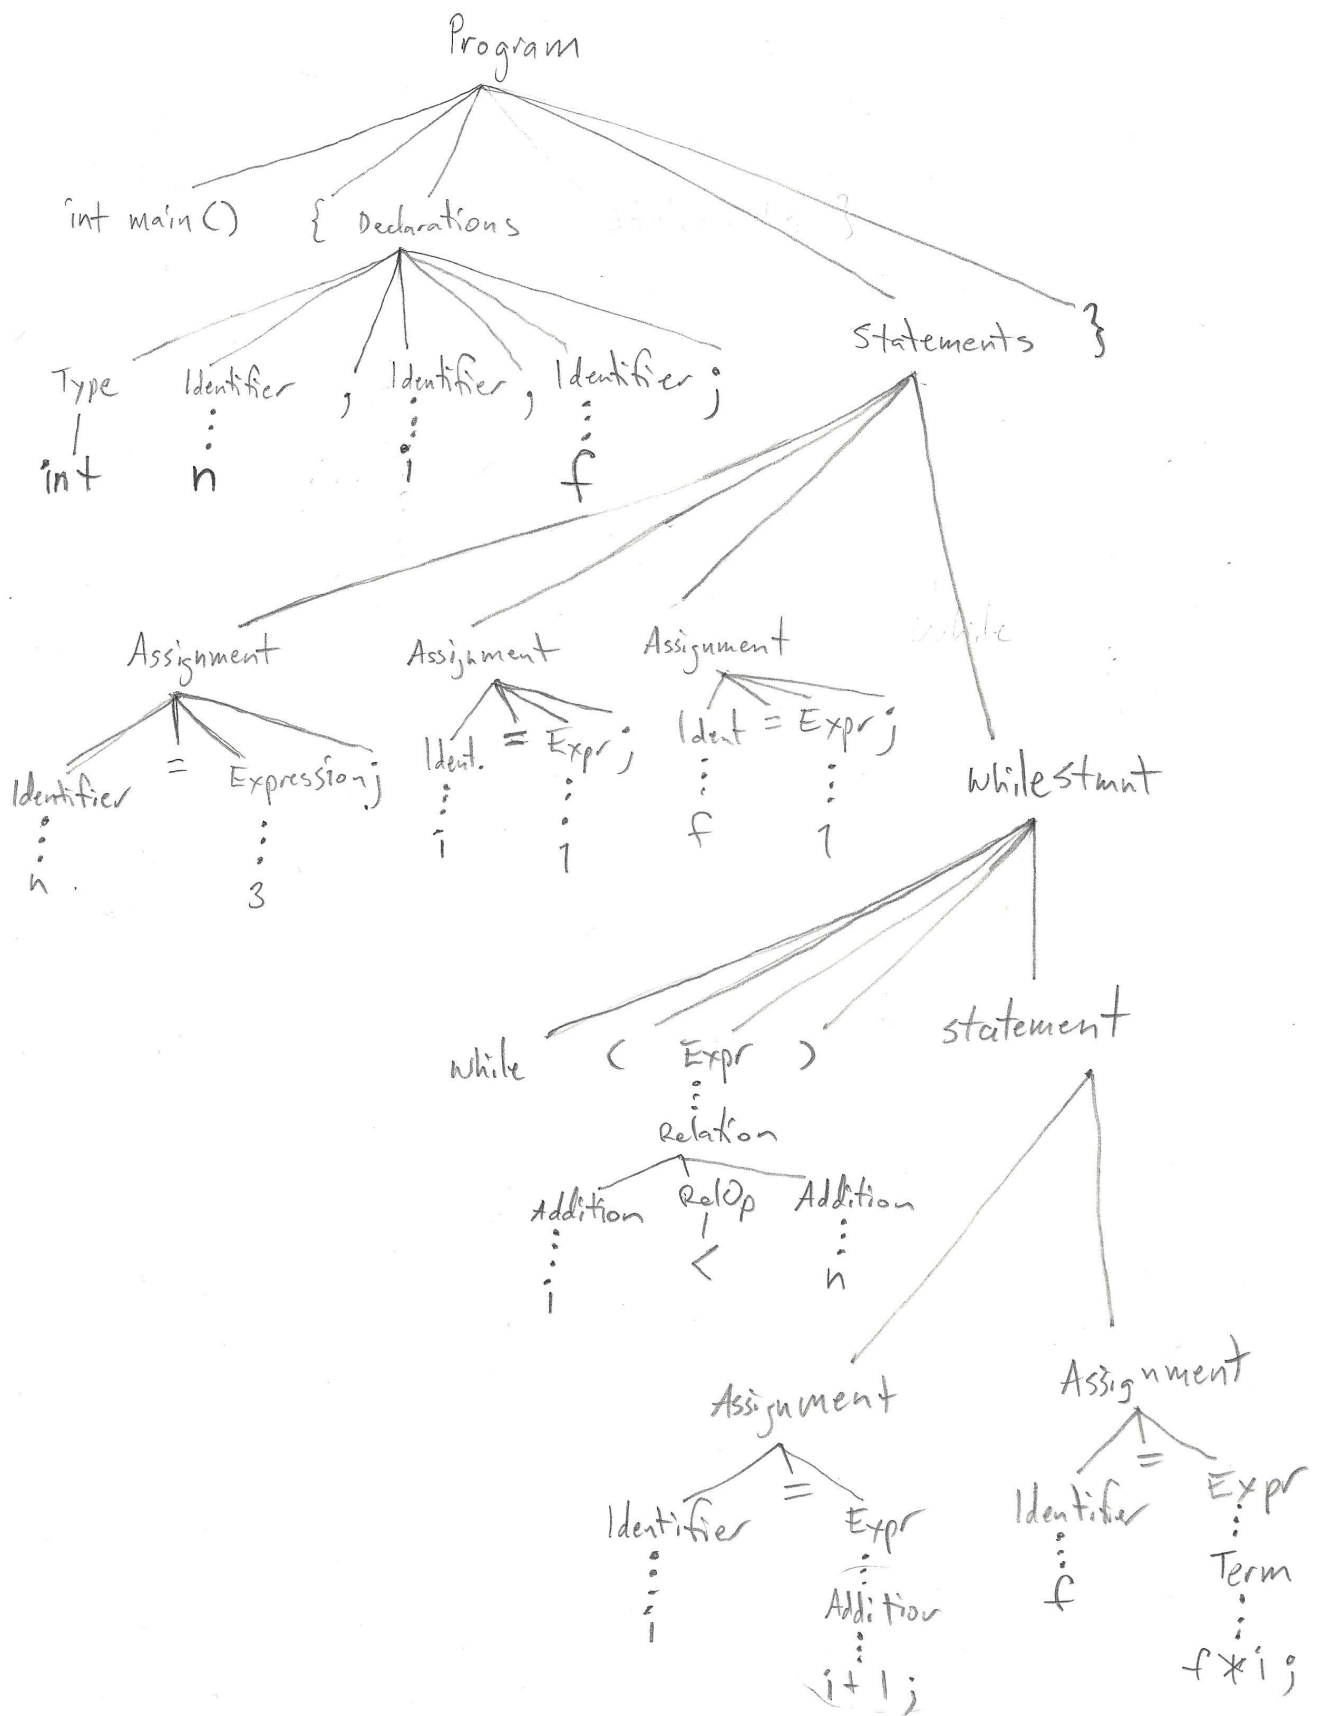 Program
int main () { Declarations
Statements }
Type Identifier , Identifier , Identifier ;
int n i f
Assignment Assignment Assignment
Identifier = Expression ; Ident. = Expr ; Ident = Expr ;
n 3 i 1 f 1
while stmnt
while ( Expr ) statement
Relation
Addition RelOp Addition
i < n
Assignment Assignment
Identifier = Expr Identifier = Expr
i Addition f Term
i + 1 ; f * i ;